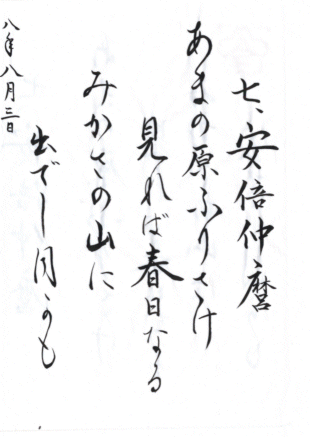 七、安倍仲麿
あまの原ふりさけ
見れば春日なる
みかさの山に
出でし月かも
八年八月三日